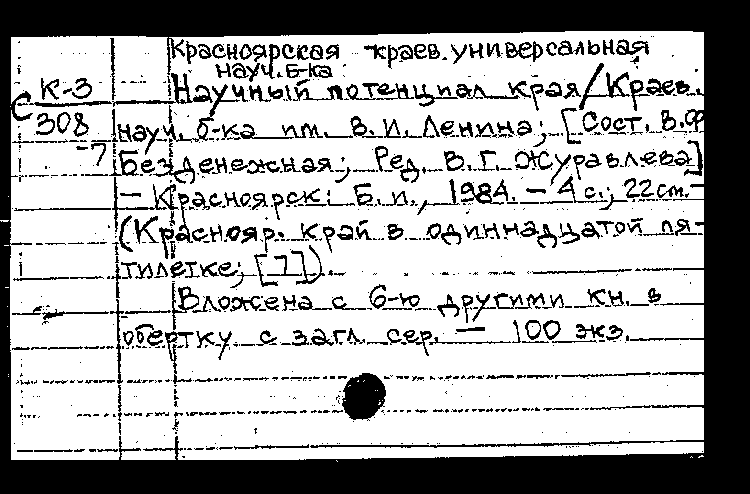 Красноярская краев. универсальная
науч. б-ка
К-3 Научный потенциал края / Краев.
С
308 науч. б-ка им. В. И. Ленина; [Сост. В.Ф
-7 Безденежная; Ред. В. Г. Журавлева]
– Красноярск: Б. и., 1984. – 4 с.; 22 см. –
(Краснояр. край в одиннадцатой пя-
тилетке; [7]).
Вложена с 6-ю другими кн. в
обертку с загл. сер. – 100 экз.